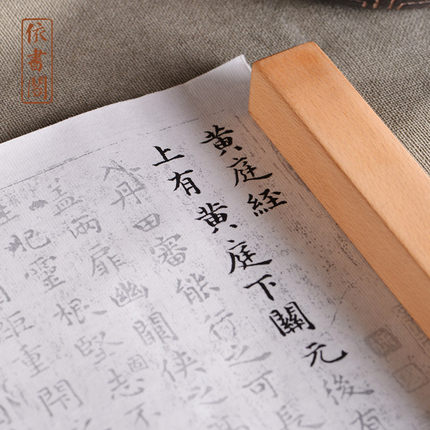 依書閣
黄庭經
上有黄庭下關元後有
入丹田審能行之可長
盖兩扉幽闕俠之
肥靈根堅志不
重閉